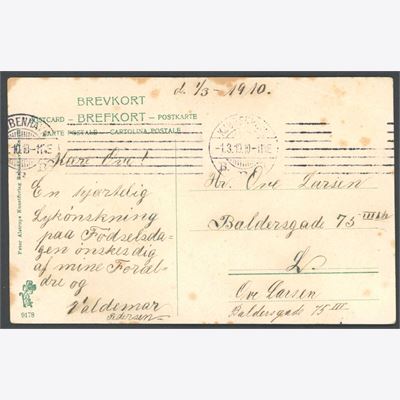 d. 1/3 - 1910.
BREVKORT
POSTCARD - BREFKORT - POSTKARTE
CARTE POSTALE - CARTOLINA POSTALE
BENHA
1.3.10.10-11E
Kære Ove!
En hjærtelig
Lykønskning
paa Fødselsda-
gen ønskes dig
af mine Foræl-
dre og
Valdemar
Pedersen
Hr. Ove Larsen
Baldersgade 75 III
L.
Ove Larsen
Baldersgade 75 III
Peter Alstrups Kunstforlag
9178